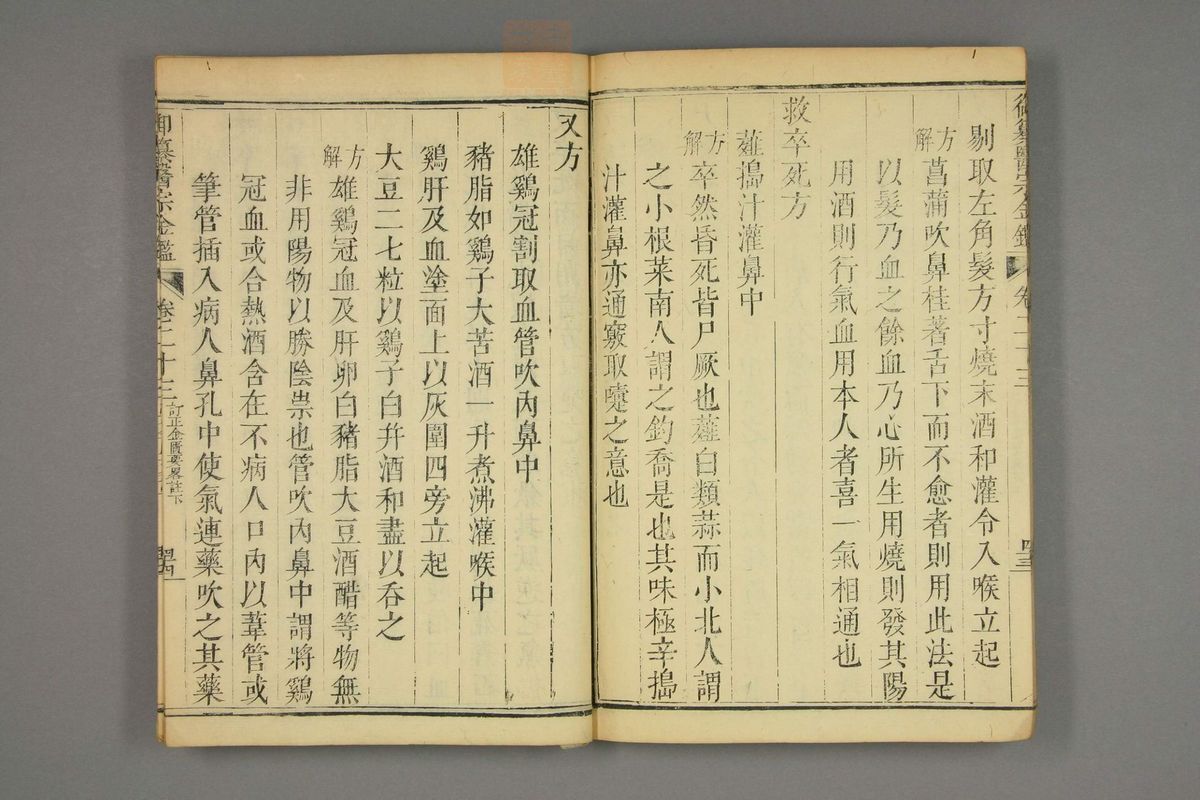 御纂醫宗金鑑 卷二十三 四三
剔取左角髮方寸燒末酒和灌令入喉立起
方解 菖蒲吹鼻桂著舌下而不愈者則用此法是
以髮乃血之餘血乃心所生用燒則發其陽
用酒則行氣血用本人者喜一氣相通也
救卒死方
薤搗汁灌鼻中
方解 卒然昏死皆尸厥也薤白類蒜而小北人謂
之小根菜南人謂之釣喬是也其味極辛搗
汁灌鼻亦通竅取嚏之意也
又方
雄鷄冠割取血管吹內鼻中
豬脂如鷄子大苦酒一升煮沸灌喉中
鷄肝及血塗面上以灰圍四旁立起
大豆二七粒以鷄子白幷酒和盡以吞之
方解 雄鷄冠血及肝卵白豬脂大豆酒醋等物無
非用陽物以勝陰祟也管吹內鼻中謂將鷄
冠血或合熱酒含在不病人口內以葦管或
筆管插入病人鼻孔中使氣連藥吹之其藥
御纂醫宗金鑑 卷二十三 訂正金匱要畧註下